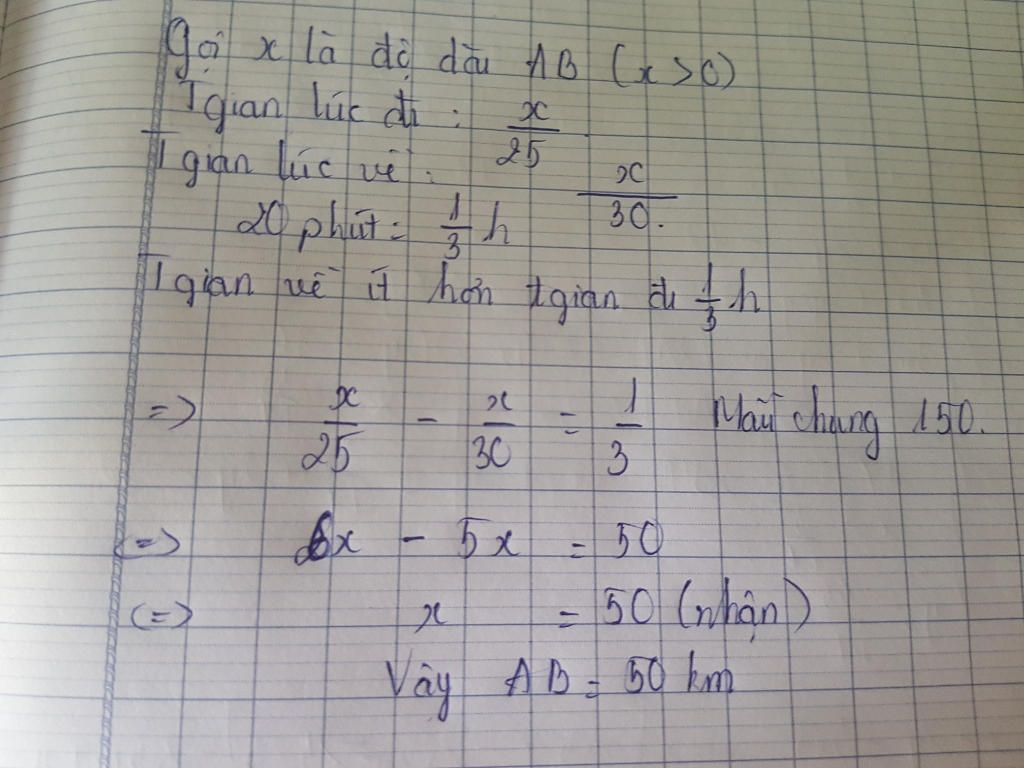 Gọi x là độ dài AB (x > 0)
Tgian lúc đi : x/25
Tgian lúc về : x/30.
20 phút = 1/3 h
Tgian về ít hơn tgian đi 1/3 h
=> x/25 - x/30 = 1/3 Mẫu chung 150.
(=> 6x - 5x = 50
(=> x = 50 (nhận)
Vây AB = 50 km